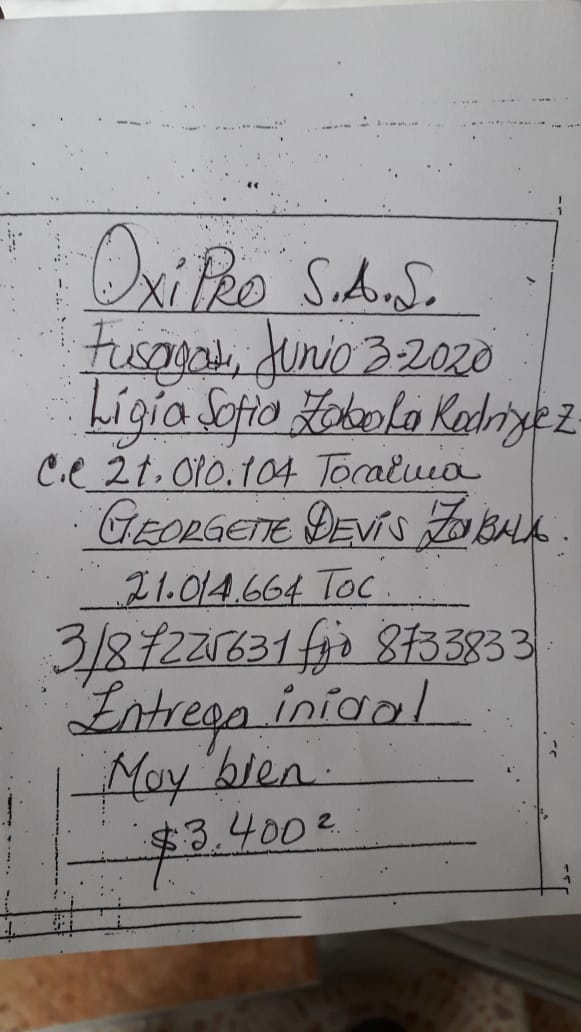 OxiPRO S.A.S.
Fusagas, Junio 3-2020
Ligia Sofia Zabala Rodriguez
C.C 21.010.104 Tocaima
GEORGETTE DEVIS ZABALA.
21.014.664 TOC.
3187225631 fijo 8733833
Entrega inicial
Moy bien.
$3.400²